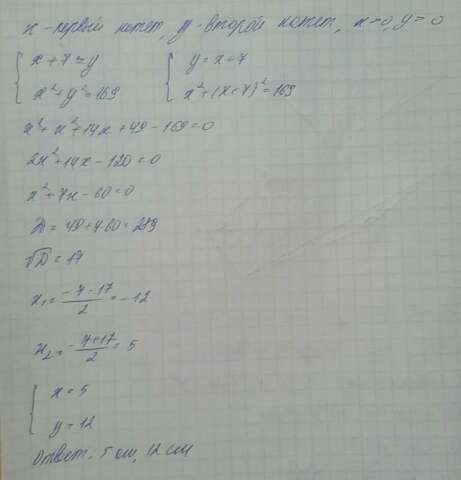 x - первый катет, y - второй катет, x > 0, y > 0
x + 7 = y y = x + 7
x² + y² = 169 x² + (x + 7)² = 169
x² + x² + 14x + 49 - 169 = 0
2x² + 14x - 120 = 0
x² + 7x - 60 = 0
D = 49 + 4·60 = 289
√D = 17
x₁ = (-7 - 17)/2 = -12
x₂ = (-7 + 17)/2 = 5
x = 5
y = 12
Ответ. 5 см, 12 см